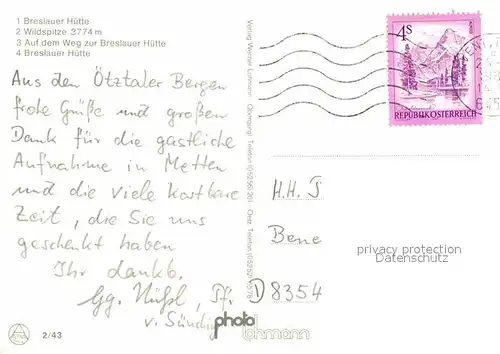 1 Breslauer Hütte
2 Wildspitze 3774 m
3 Auf dem Weg zur Breslauer Hütte
4 Breslauer Hütte
Aus den Ötztaler Bergen
frohe Grüße und großen
Dank für die gastliche
Aufnahme in Metten
und die viele kostbare
Zeit, die Sie uns
geschenkt haben
Ihr dankb.
Gg. Nüßl, Pfr
v. Sünching
2/43
Verlag Werner Lohmann
4 S
REPUBLIK ÖSTERREICH
H. H. J
Bene
D 8354
privacy protection
Datenschutz
photo
lohmann